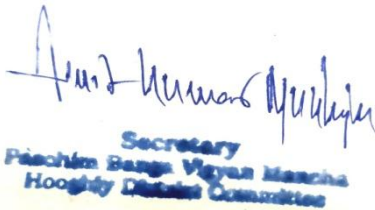 Amit Kumar
Secretary
Paschim Banga Vigyan Mancha
Hooghly District Committee